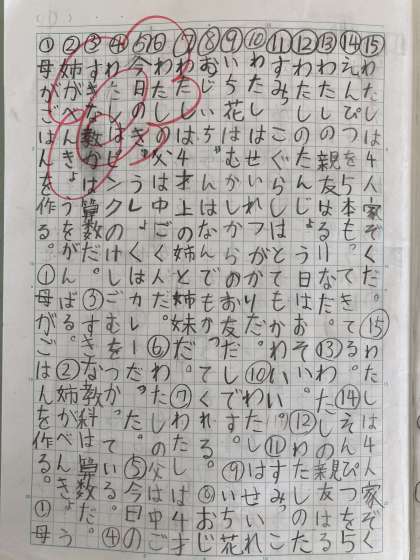 ⑮わたしは4人家ぞくだ。⑮わたしは4人家ぞく
⑭えんぴつを5本もってきてる⑭えんぴつを5
⑬わたしの親友はるりなだ。⑬わたしの親友はる
⑫わたしのたんじょう日はおそい。⑫わたしのた
⑪すみっこぐらしはとてもかわいい。⑪すみっこ
⑩わたしはせいれつがかりだ。⑩わたしはせいれ
⑨いち花はむかしからのお友だしです。⑨いち花
⑧おじいちゃんはなんでもかってくれる。⑧おじ
⑦わたしは4才上の姉と姉妹だ。⑦わたしは4才
⑥わたしの父は中ごく人だ。⑥わたしの父は中ご
⑤今日のきゅうしょくはカレーだった。⑤今日の
④わたしはピンクのけしごむをつかっている。④
③すきな教科は算数だ。③すきな教科は算数だ。
②姉がべんきょうをがんばる。②姉がべんきょう
①母がごはんを作る。①母がごはんを作る。①母